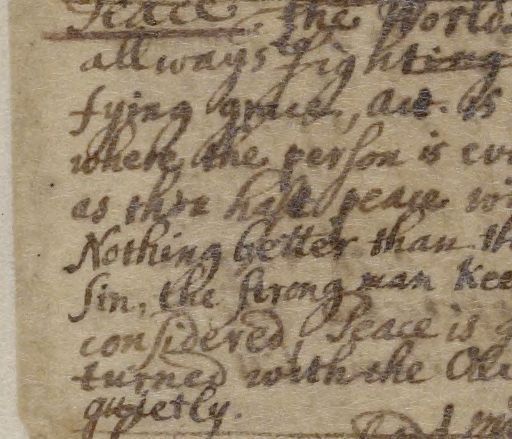 Peace, the World:
allways fighting
fying grace, Act. is
where the person is
as thou hast peace
Nothing better than
sin, the strong man
considered, Peace is
turned with the
quietly.